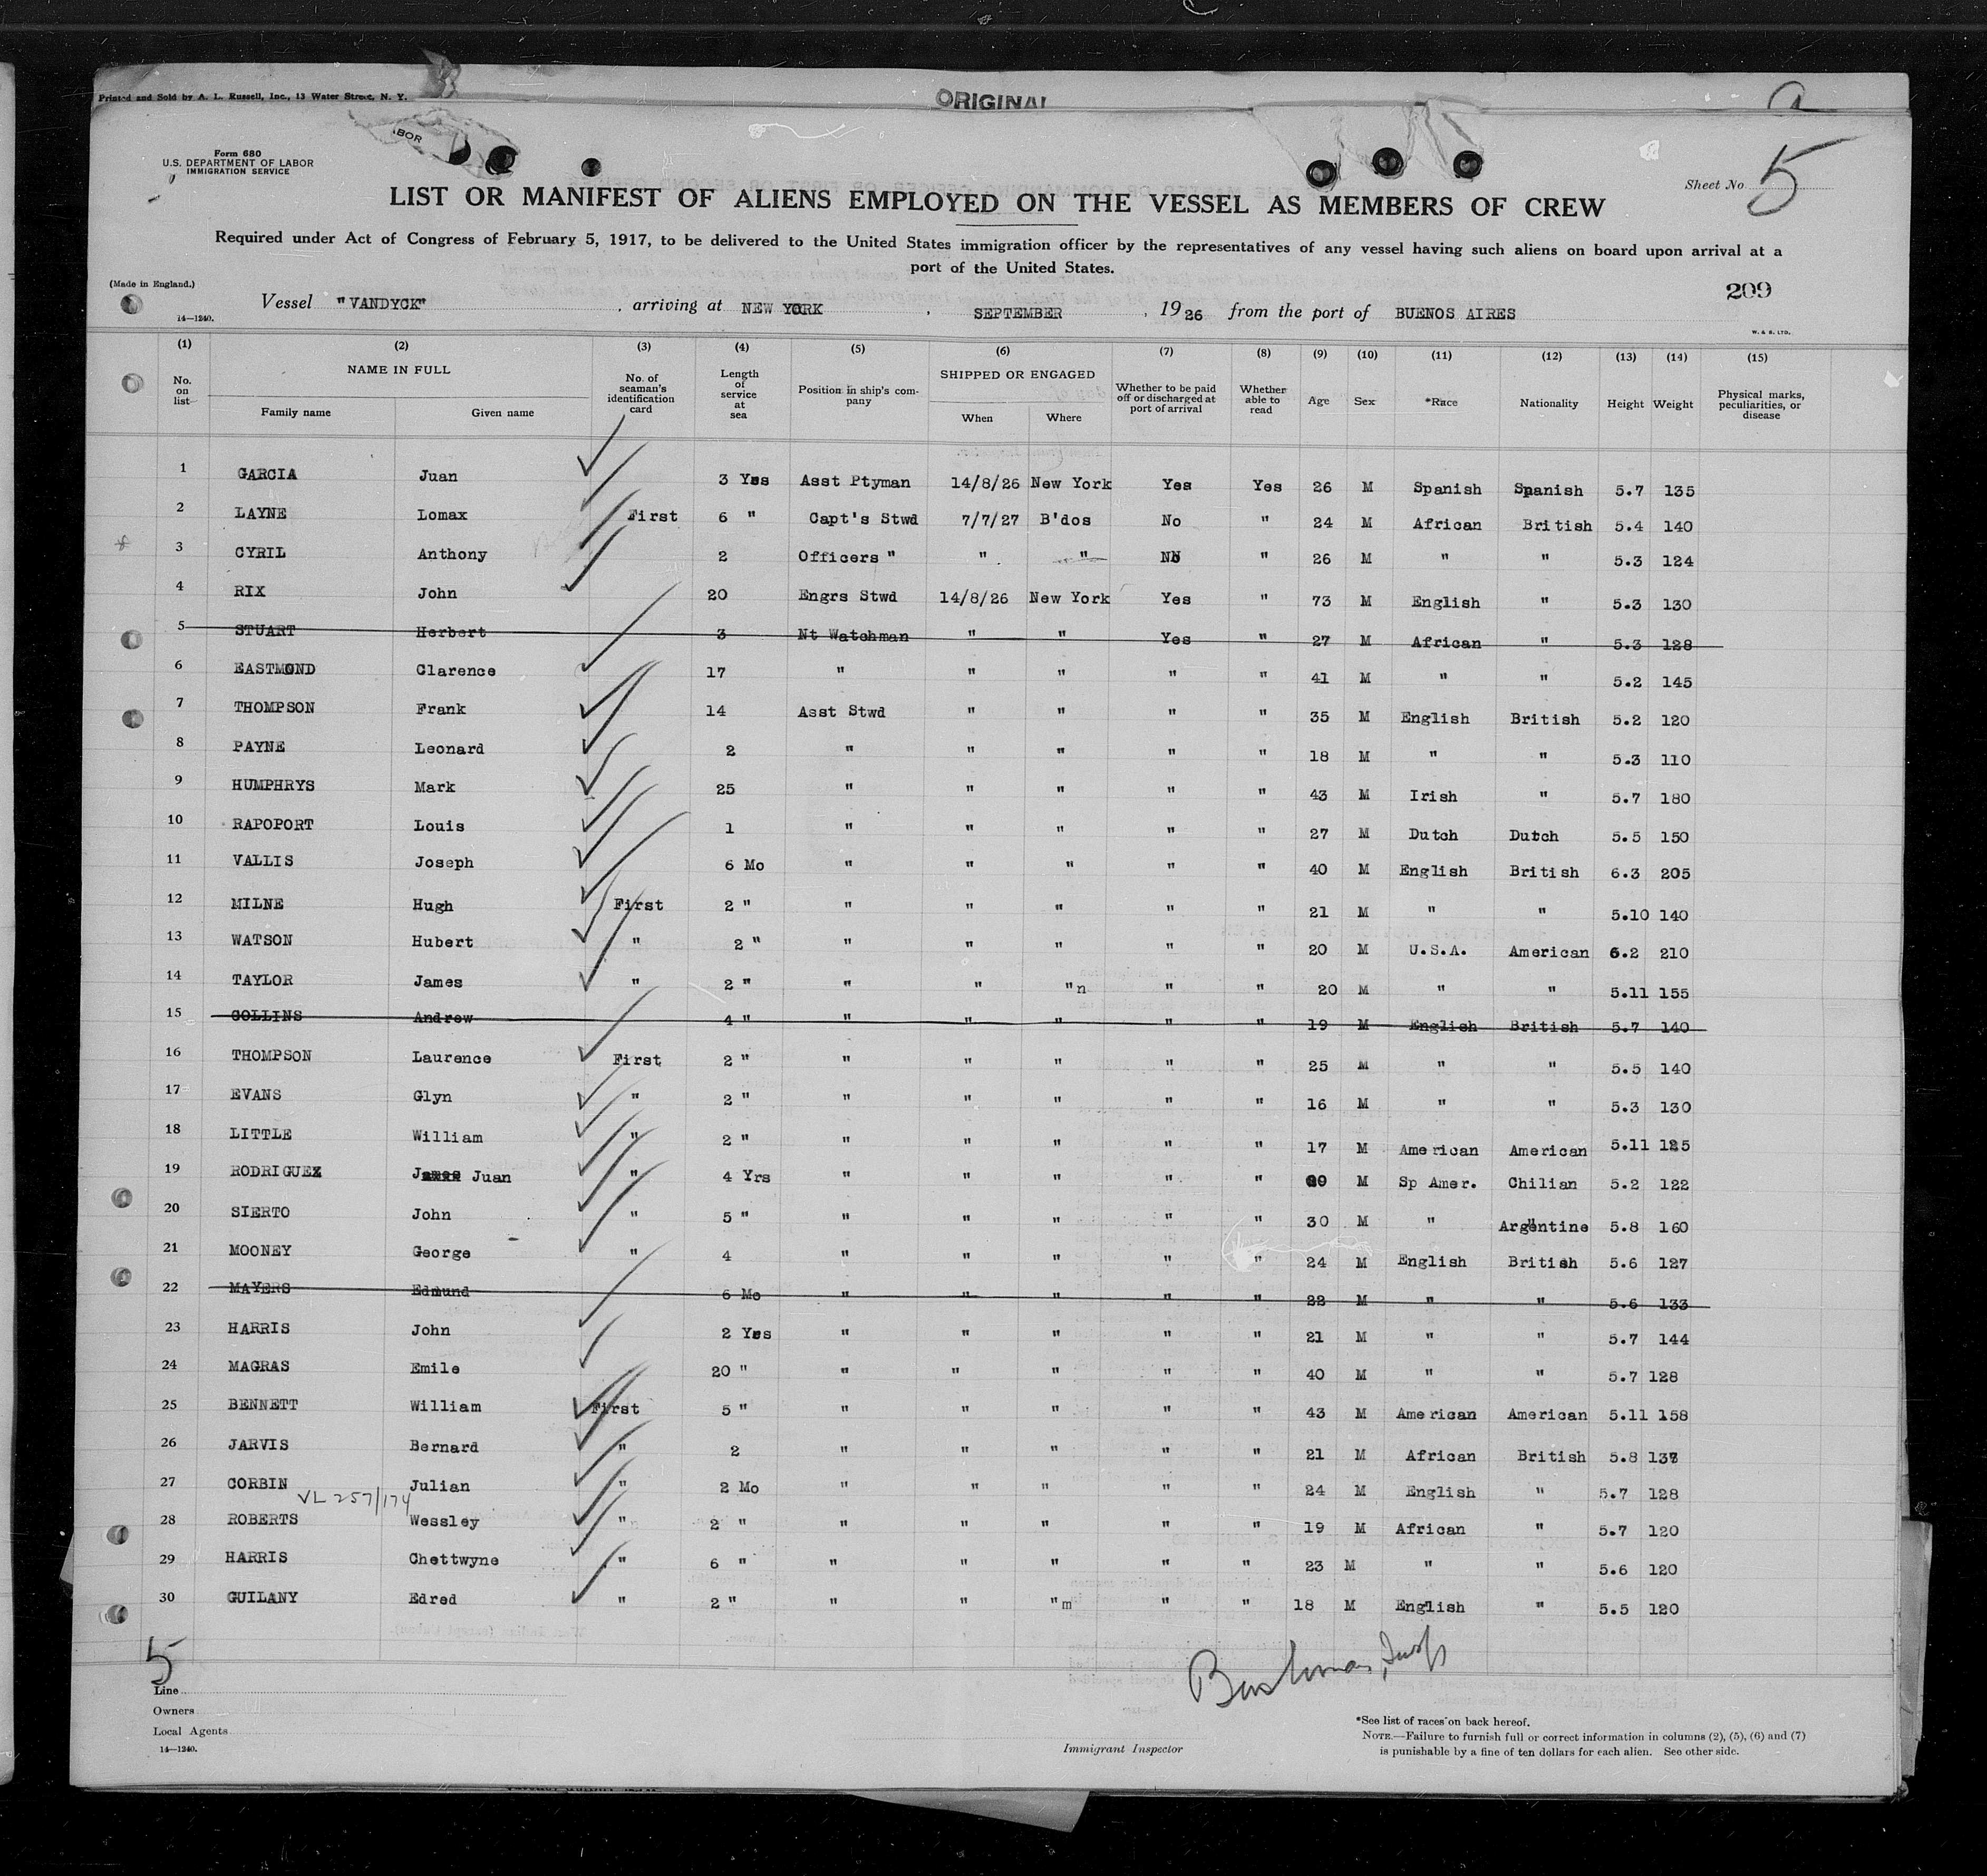 Printed and Sold by A. L. Russell, Inc., 13 Water Street, N. Y.
ORIGINAL
ABOR
Form 680
U.S. DEPARTMENT OF LABOR
IMMIGRATION SERVICE
Sheet No. 5
LIST OR MANIFEST OF ALIENS EMPLOYED ON THE VESSEL AS MEMBERS OF CREW
Required under Act of Congress of February 5, 1917, to be delivered to the United States immigration officer by the representatives of any vessel having such aliens on board upon arrival at a
port of the United States.
(Made in England.)
209
Vessel "VANDYCK", arriving at NEW YORK, SEPTEMBER, 1926 from the port of BUENOS AIRES
14—1240.
W. & S. LTD.
(1) (2) (3) (4) (5) (6) (7) (8) (9) (10) (11) (12) (13) (14) (15)
No. on list NAME IN FULL Family name Given name No. of seaman's identification card Length of service at sea Position in ship's company SHIPPED OR ENGAGED When Where Whether to be paid off or discharged at port of arrival Whether able to read Age Sex *Race Nationality Height Weight Physical marks, peculiarities, or disease
1 GARCIA Juan 3 Yrs Asst Ptyman 14/8/26 New York Yes Yes 26 M Spanish Spanish 5.7 135
2 LAYNE Lomax First 6 " Capt's Stwd 7/7/27 B'dos No " 24 M African British 5.4 140
3 CYRIL Anthony 2 Officers " " " No " 26 M " " 5.3 124
4 RIX John 20 Engrs Stwd 14/8/26 New York Yes " 73 M English " 5.3 130
5 STUART Herbert 3 Nt Watchman " " Yes " 27 M African " 5.3 128
6 EASTMOND Clarence 17 " " " " " 41 M " " 5.2 145
7 THOMPSON Frank 14 Asst Stwd " " " " 35 M English British 5.2 120
8 PAYNE Leonard 2 " " " " " 18 M " " 5.3 110
9 HUMPHRYS Mark 25 " " " " " 43 M Irish " 5.7 180
10 RAPOPORT Louis 1 " " " " " 27 M Dutch Dutch 5.5 150
11 VALLIS Joseph 6 Mo " " " " " 40 M English British 6.3 205
12 MILNE Hugh First 2 " " " " " " 21 M " " 5.10 140
13 WATSON Hubert " 2 " " " " " " 20 M U.S.A. American 6.2 210
14 TAYLOR James " 2 " " " "n " " 20 M " " 5.11 155
15 COLLINS Andrew 4 " " " " " " 19 M English British 5.7 140
16 THOMPSON Laurence First 2 " " " " " " 25 M " " 5.5 140
17 EVANS Glyn " 2 " " " " " " 16 M " " 5.3 130
18 LITTLE William " 2 " " " " " " 17 M American American 5.11 125
19 RODRIGUEZ James Juan " 4 Yrs " " " " " M Sp Amer. Chilian 5.2 122
20 SIERTO John " 5 " " " " " " 30 M " Argentine 5.8 160
21 MOONEY George " 4 " " " " " 24 M English British 5.6 127
22 MAYERS Edmund 6 Mo " " " " " 22 M " " 5.6 133
23 HARRIS John 2 Yrs " " " " " 21 M " " 5.7 144
24 MAGRAS Emile 20 " " " " " " 40 M " " 5.7 128
25 BENNETT William First 5 " " " " " " 43 M American American 5.11 158
26 JARVIS Bernard " 2 " " " " " 21 M African British 5.8
27 CORBIN Julian " 2 Mo " " " " " 24 M English " 5.7 128
VL 257/174
28 ROBERTS Wessley " 2 " " " " " " 19 M African " 5.7 120
29 HARRIS Chettwyne " 6 " " " " " " 23 M " " 5.6 120
30 GUILANY Edred " 2 " " " "m " " 18 M English " 5.5 120
5
Line
Owners
Local Agents
14—1240.
Immigrant Inspector
*See list of races on back hereof.
NOTE.—Failure to furnish full or correct information in columns (2), (5), (6) and (7)
is punishable by a fine of ten dollars for each alien. See other side.